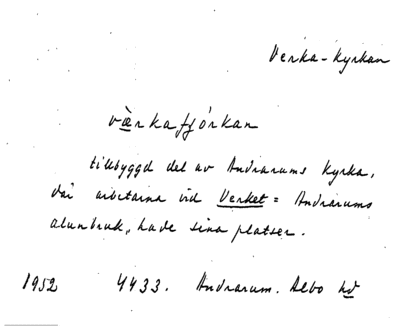 Verka-kyrkan
væ̀rkafjórkan
tillbyggd del av Andrarums kyrka,
där arbetarna vid Verket = Andrarums
alunbruk, hade sina platser.
1952 4433. Andrarum. Albo hd